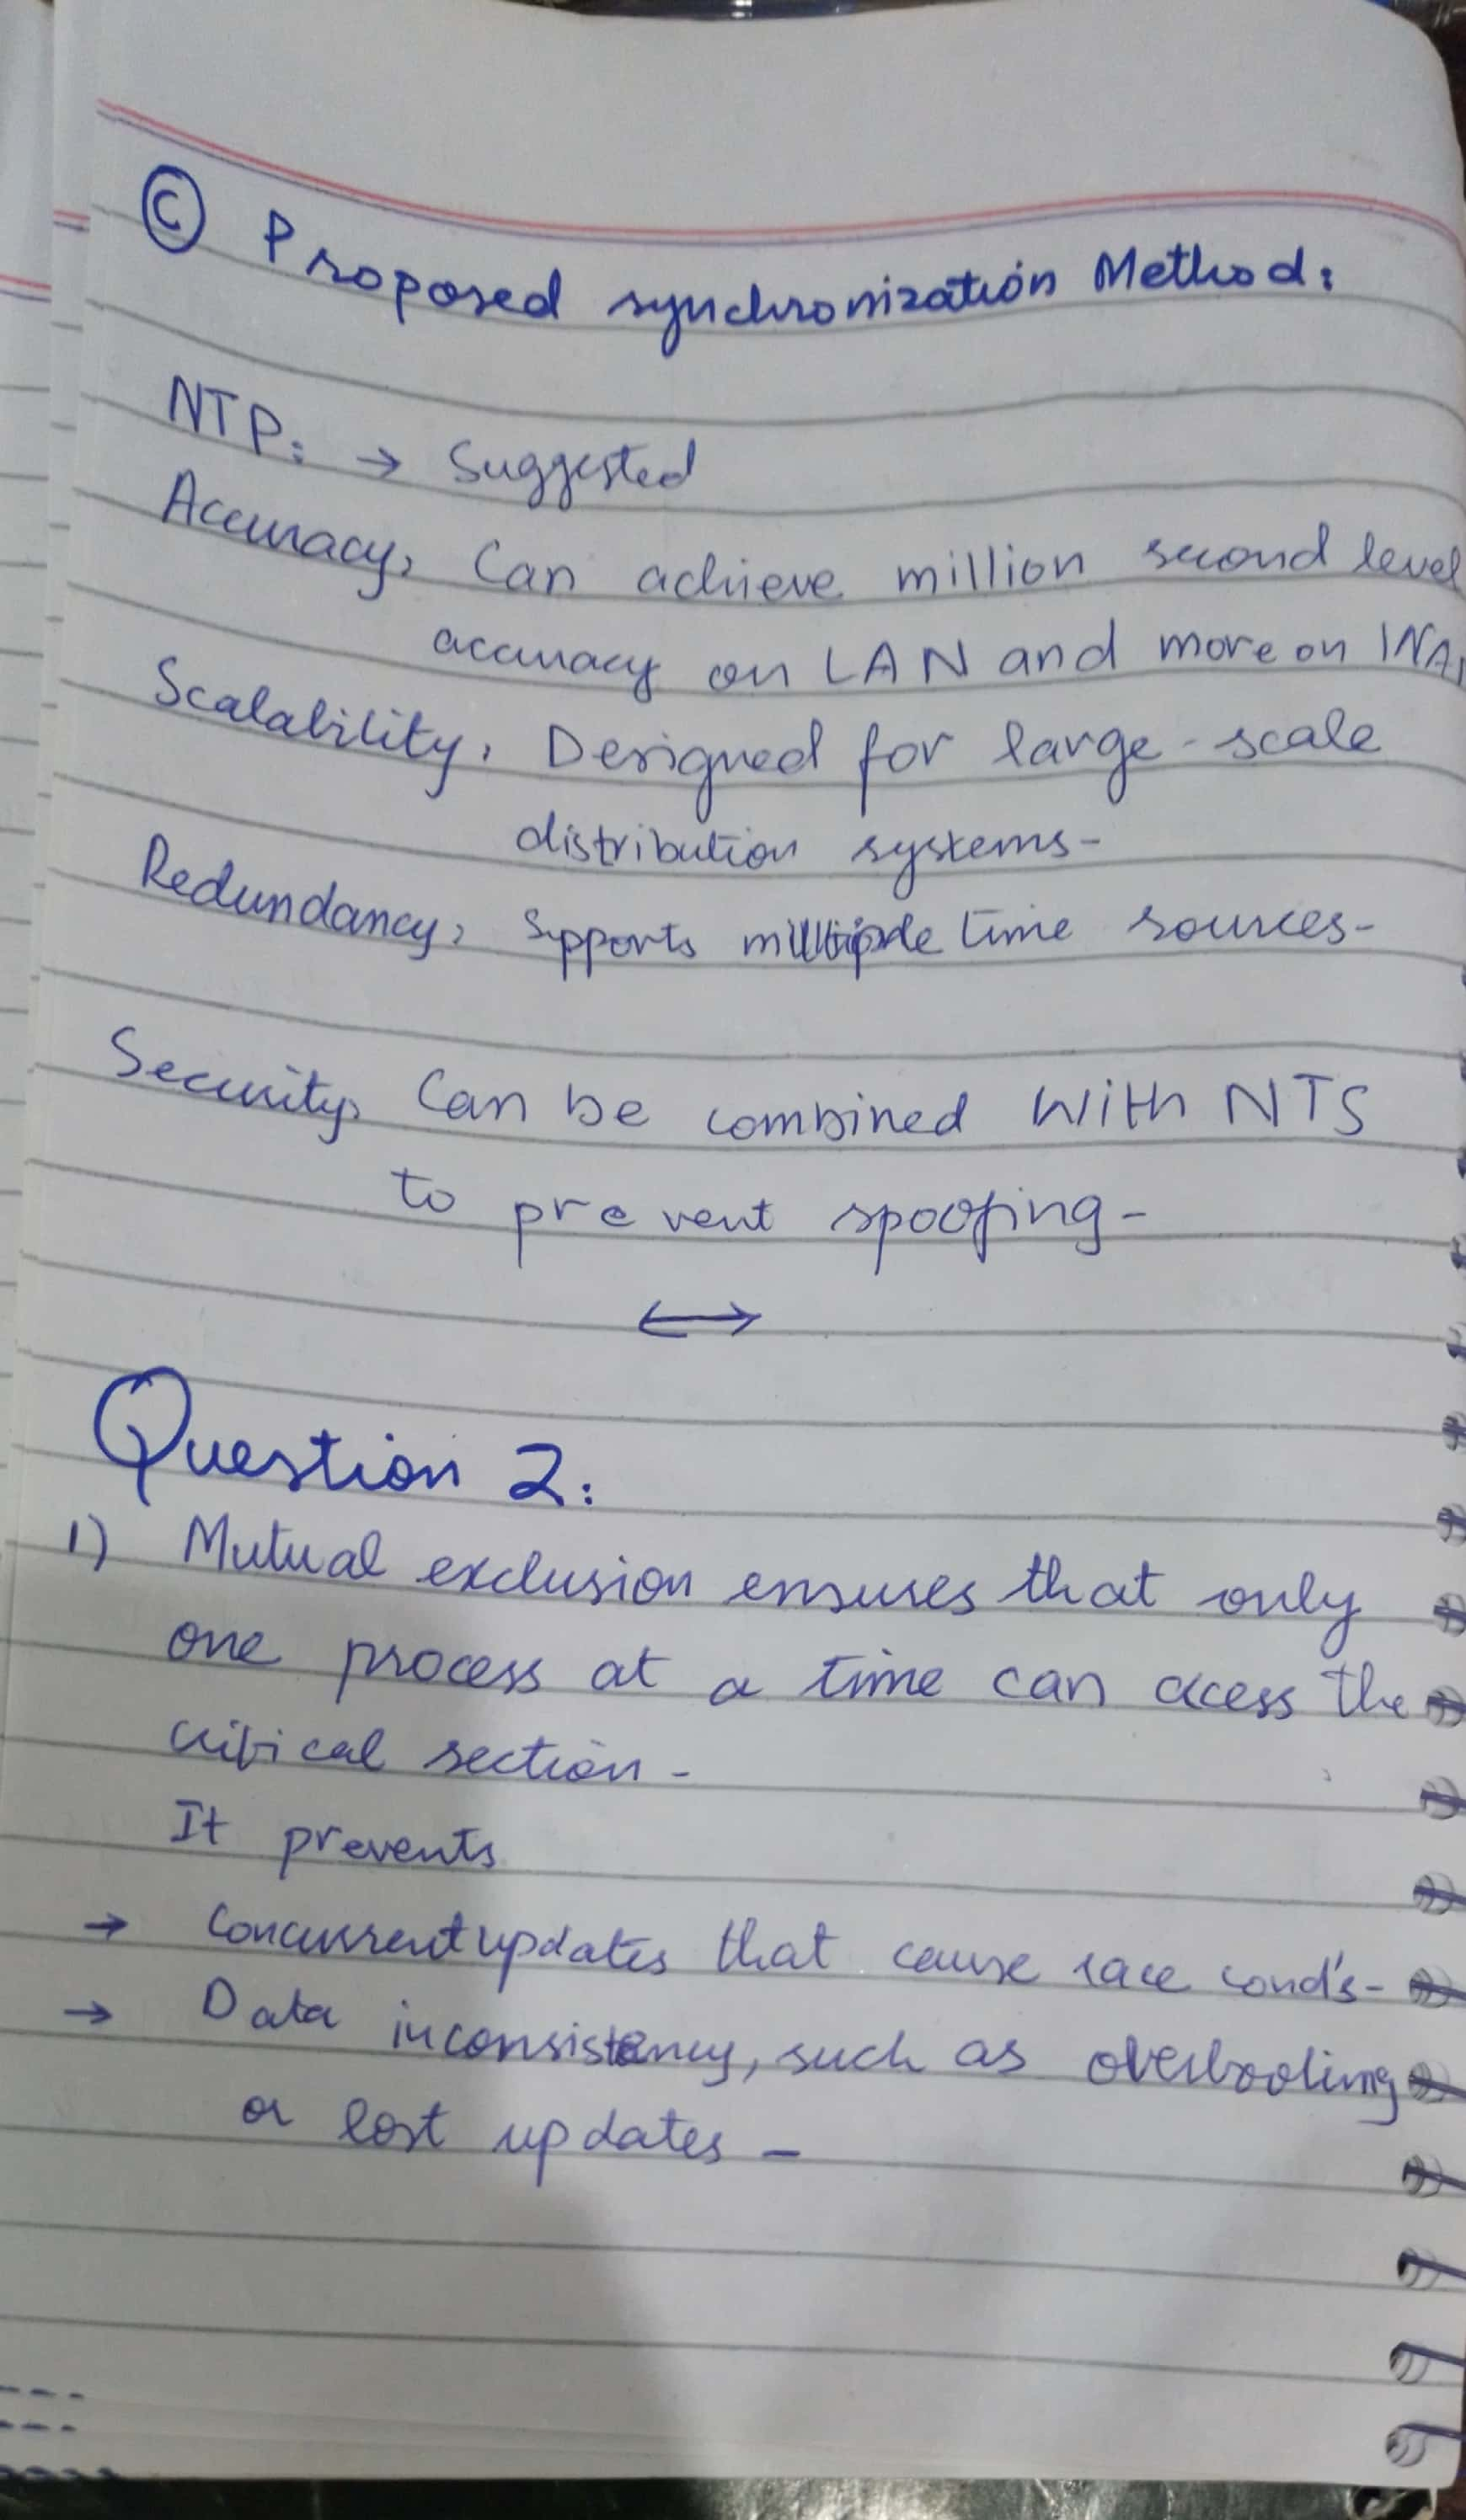 © Proposed synchronization Method:
NTP: → Suggested
Accuracy, Can achieve million second level
accuracy on LAN and more on WAN
Scalability, Designed for large-scale
distribution systems-
Redundancy, Supports multiple time sources-
Security, Can be combined with NTS
to prevent spoofing-
↔
Question 2:
1) Mutual exclusion ensures that only
one process at a time can acess the
critical section-
It prevents
→ Concurrent updates that cause race cond's-
→ Data inconsistency, such as overbooking
or lost updates-